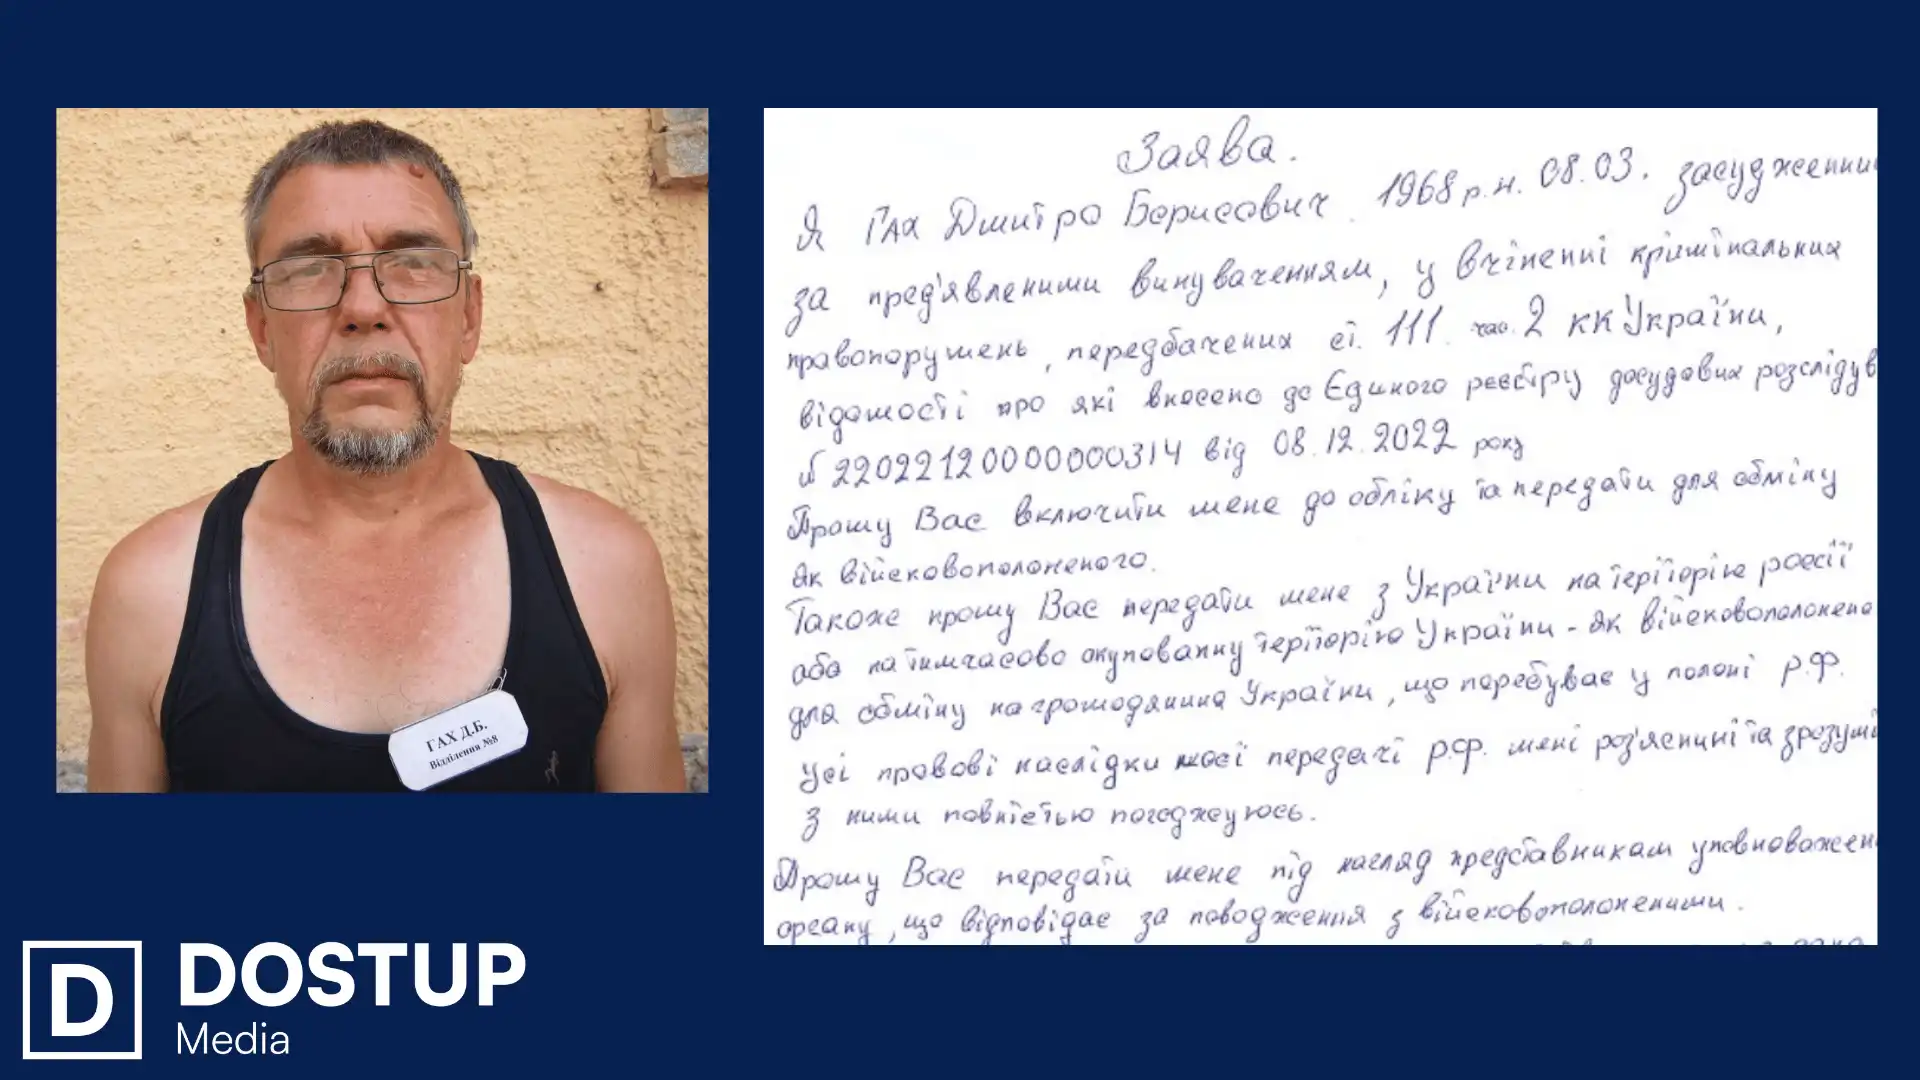 ГАХ Д.Б.
Відділення №8
Заява.
Я Гах Дмитро Борисович. 1968 р.н. 08.03. засуджений
за пред'явленими винуваченням, у вчіненні кримінальних
правопорушень, передбачених ст. 111. час. 2 КК України,
відомості про які внесено до Єдиного реєстру досудових розслідув
№ 22022120000000314 від 08.12.2022 року
Прошу Вас включити мене до обліку та передати для обміну
як військовополоненого.
Також прошу Вас передати мене з України на територію россії
або на тимчасово окуповану територію України - як військовополонено
для обміну на громодянина України, що перебуває у полоні р.Ф.
Усі правові наслідки моєї передачі р.ф. мені роз'яснині та зрозумі
з ними повністью погоджуюсь.
Прошу Вас передати мене під нагляд представникам уповноважен
органу, що відповідає за поводження з військовополоненими.
DOSTUP
Media